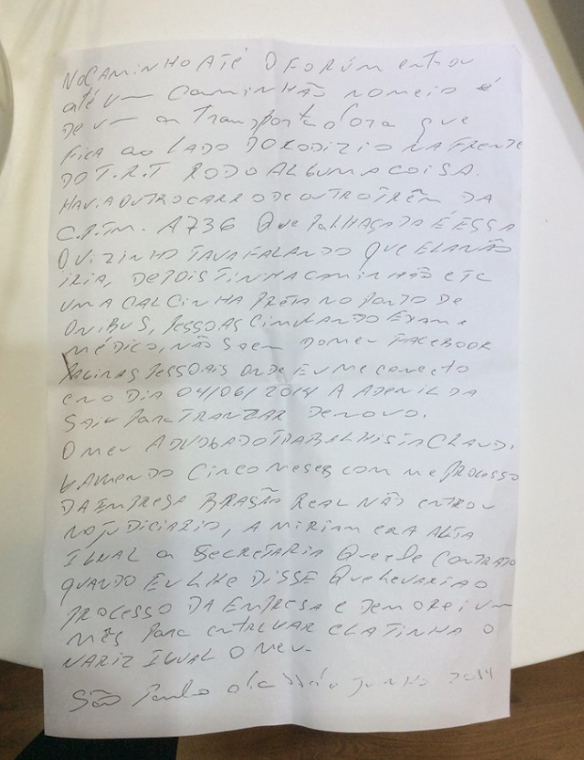 NO CAMINHO ATÉ O FORÚM entrou
até um CAMINHÃO NO MEIO é
DE um a TransPortadora que
FICA AO LADO DO RODIZIO NA FRENTE
DO T.R.T RODO ALGUMA COISA.
HAVIA OUTRO CARRO DE OUTRO TRÊM DA
C.P.T.M. A736 Que PALHAÇADA É ESSA
O VIZINHO TAVA FALANDO QUE ELA NÃO
IRIA, DEPOIS TINHA CAMINHÃO ETC
UMA CALCINHA PRETA NO PONTO DE
ONIBUS, PESSOAS EXAME
MÉDICO, NÃO SAEM DO MEU FACEBOOK
PAGINAS PESSOAIS ONDE EU ME CONECTO
E NO DIA 04/06/2014 A ADENILDA
SAIU PARA TRANZAR DE NOVO.
O MEU ADVOGADO TRABALHISTA
CINCO MESES COM meu PROCESSO
DA EMPRESA BRASÃO REAL NÃO ENTROU
NO JUDICIARIO, A MIRIAM ERA ALTA
IGUAL a SECRETARIA QUE ELE CONTRATO
QUANDO EU LHE DISSE QUE LEVARIA O
PROCESSO DA EMPRESA E DEMOREI UM
MÊS PARA ENTREGAR ELA TINHA O
NARIZ IGUAL O MEU.
São Paulo Junho 2014